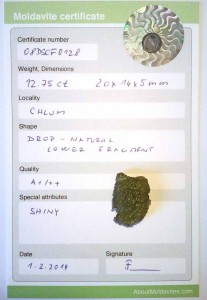 Moldavite certificate
Certificate number
08DSCF0128
Weight, Dimensions
12.75 ct 20x14x5mm
Locality
CHLUM
Shape
DROP - NATURAL
LOWER FRAGMENT
Quality
A+/++
Special attributes
SHINY
Date
Signature
1-2.2014
AboutMoldavites.com